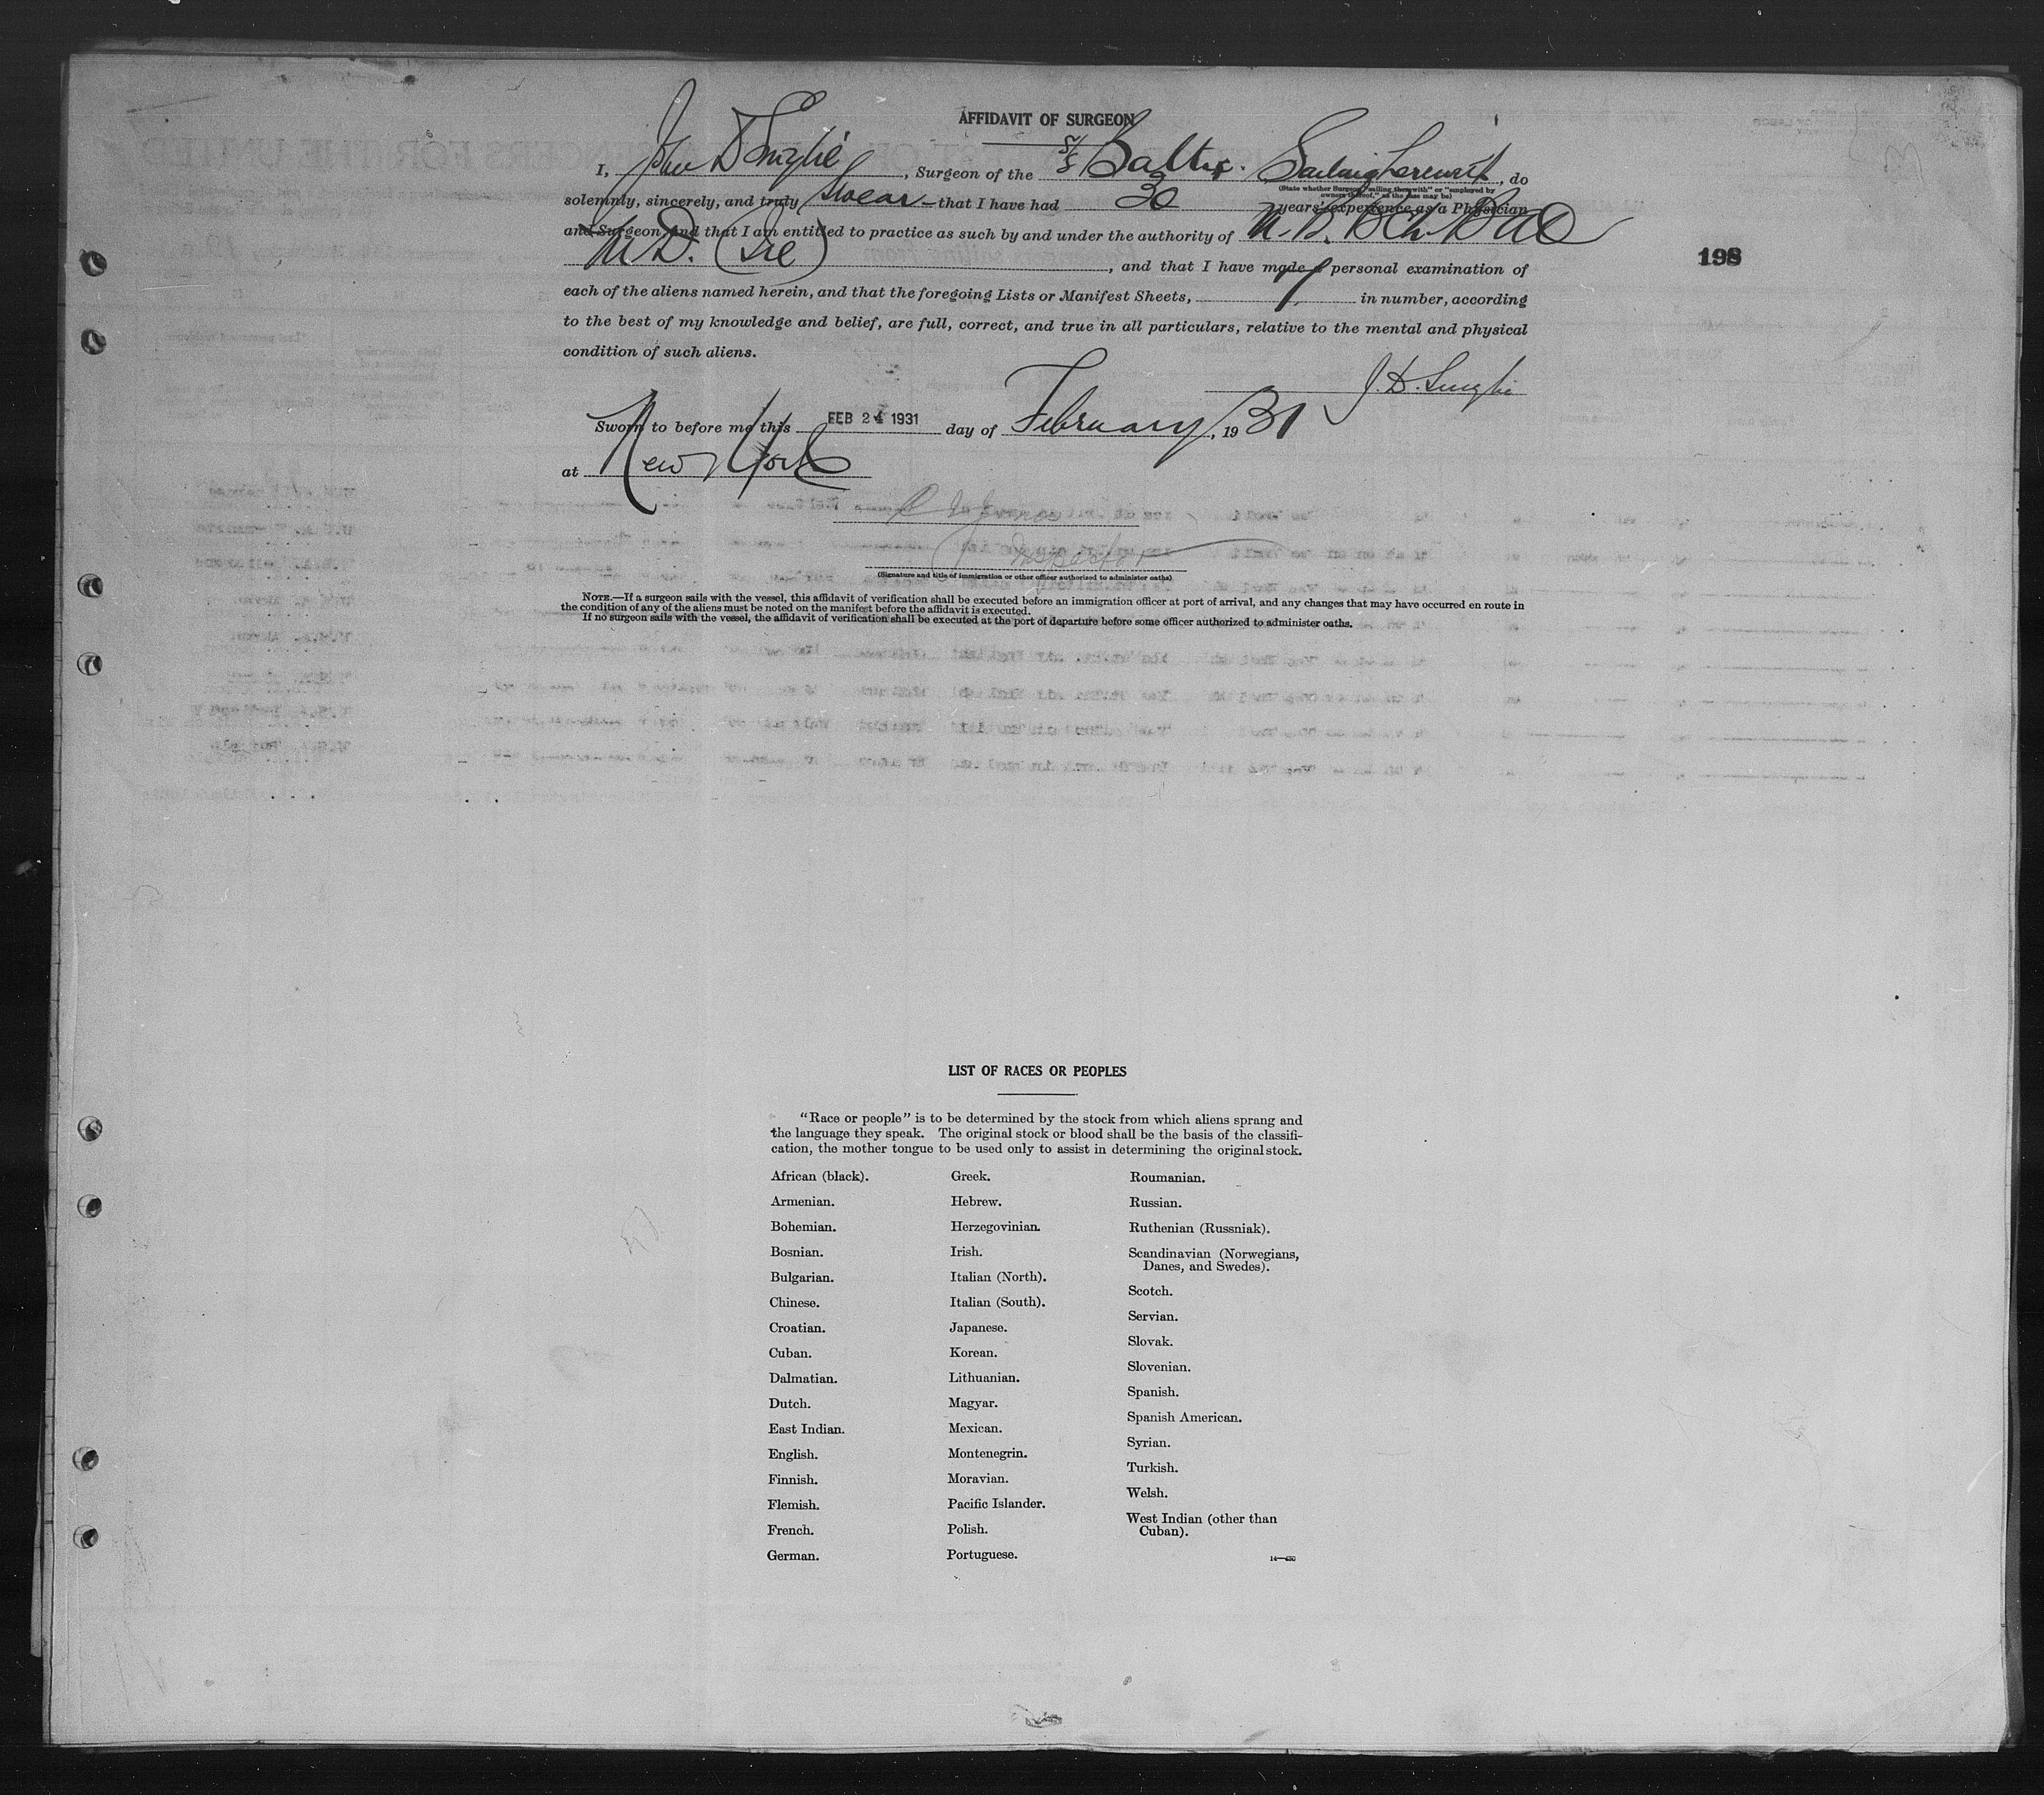 AFFIDAVIT OF SURGEON
I, John D , Surgeon of the S/S Baltic. Sailing therewith, do
(State whether Surgeon "sailing therewith" or "employed by owners thereof," as the case may be)
solemnly, sincerely, and truly Swear that I have had 30 years' experience as a Physician
and Surgeon, and that I am entitled to practice as such by and under the authority of M.B. BCh BAO
M.D. (Ire) , and that I have made a personal examination of
each of the aliens named herein, and that the foregoing Lists or Manifest Sheets, in number, according
to the best of my knowledge and belief, are full, correct, and true in all particulars, relative to the mental and physical
condition of such aliens.
198
J. D.
Sworn to before me this FEB 24 1931 day of February, 1931
at New York
Inspector
(Signature and title of immigration or other officer authorized to administer oaths)
NOTE.—If a surgeon sails with the vessel, this affidavit of verification shall be executed before an immigration officer at port of arrival, and any changes that may have occurred en route in
the condition of any of the aliens must be noted on the manifest before the affidavit is executed.
If no surgeon sails with the vessel, the affidavit of verification shall be executed at the port of departure before some officer authorized to administer oaths.
LIST OF RACES OR PEOPLES
"Race or people" is to be determined by the stock from which aliens sprang and
the language they speak. The original stock or blood shall be the basis of the classifi-
cation, the mother tongue to be used only to assist in determining the original stock.
African (black).
Armenian.
Bohemian.
Bosnian.
Bulgarian.
Chinese.
Croatian.
Cuban.
Dalmatian.
Dutch.
East Indian.
English.
Finnish.
Flemish.
French.
German.
Greek.
Hebrew.
Herzegovinian.
Irish.
Italian (North).
Italian (South).
Japanese.
Korean.
Lithuanian.
Magyar.
Mexican.
Montenegrin.
Moravian.
Pacific Islander.
Polish.
Portuguese.
Roumanian.
Russian.
Ruthenian (Russniak).
Scandinavian (Norwegians,
Danes, and Swedes).
Scotch.
Servian.
Slovak.
Slovenian.
Spanish.
Spanish American.
Syrian.
Turkish.
Welsh.
West Indian (other than
Cuban).
14—430